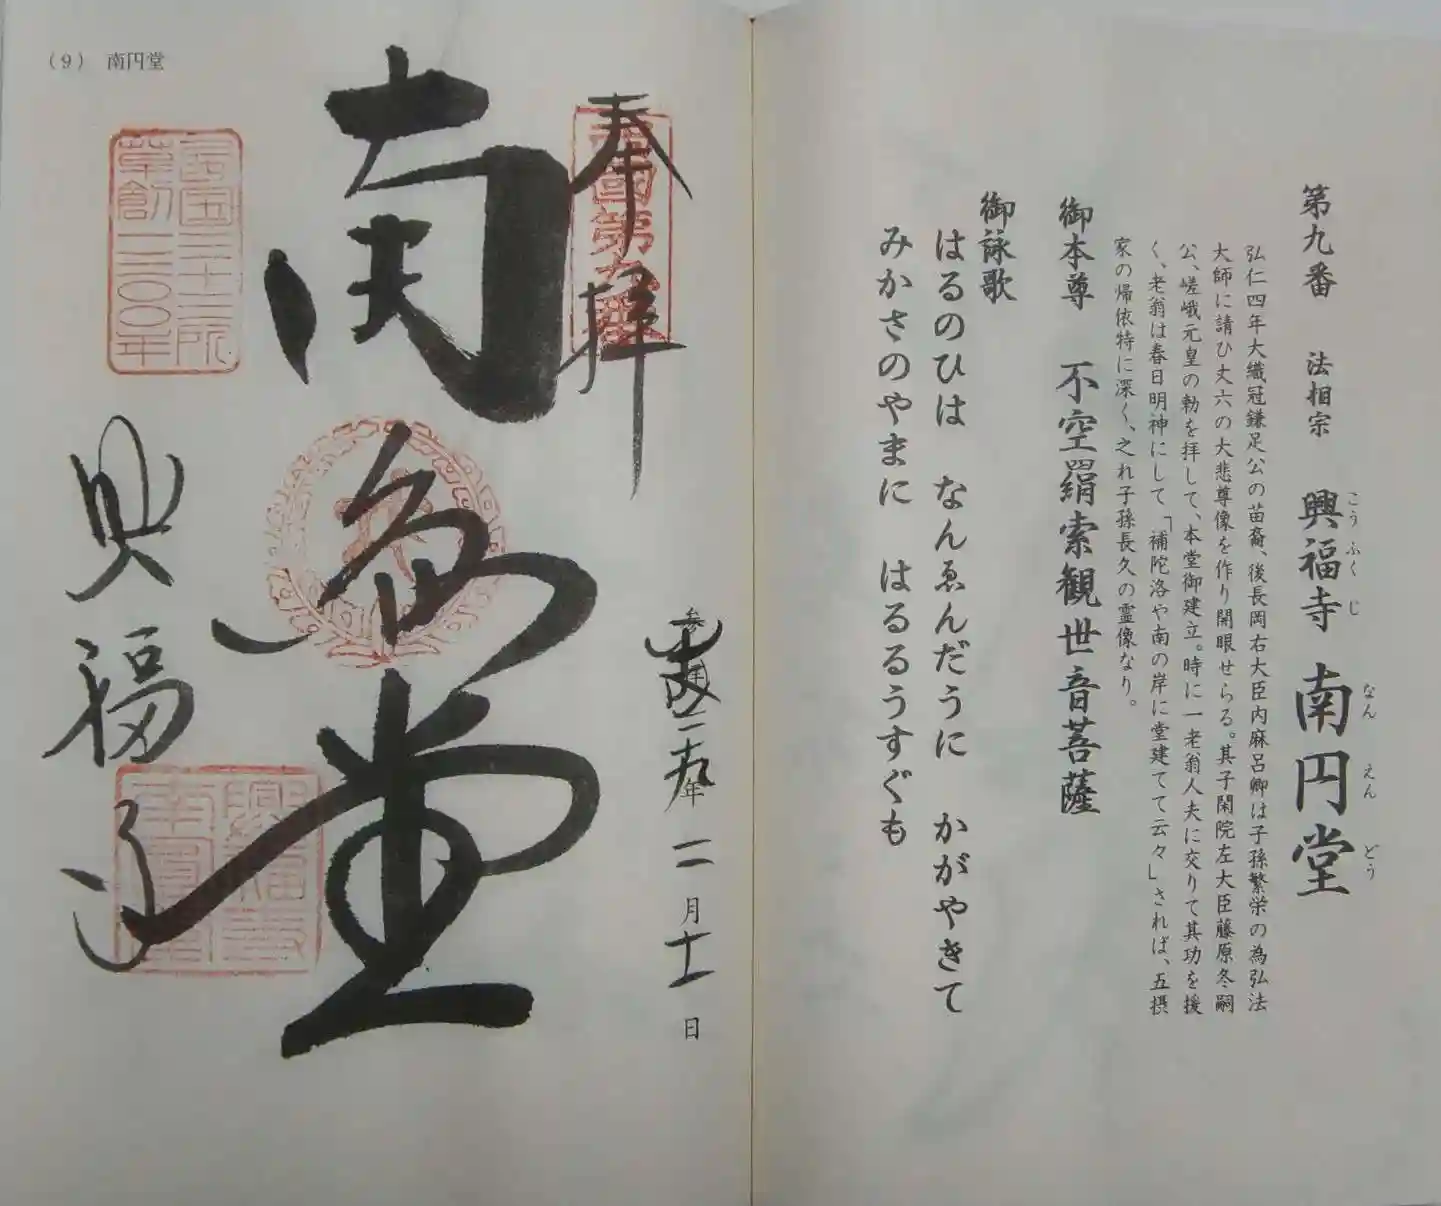 第九番　法相宗　興福寺　南円堂
こうふくじ　なんえんどう
弘仁四年大織冠鎌足公の苗裔、後長岡右大臣内麻呂卿は子孫繁栄の為弘法
大師に請ひ丈六の大悲尊像を作り開眼せらる。其子閑院左大臣藤原冬嗣
公、嵯峨元皇の勅を拝して、本堂御建立。時に一老翁人夫に交りて其功を援
く、老翁は春日明神にして、「補陀洛や南の岸に堂建てて云々」されば、五摂
家の帰依特に深く、之れ子孫長久の霊像なり。
御本尊　不空羂索観世音菩薩
御詠歌
はるのひは　なんゑんだうに　かがやきて
みかさのやまに　はるるうすぐも
(9)　南円堂
奉拝
西国第九番
平成二十九年二月十一日
南円堂
西国三十三所
草創一三〇〇年
興福寺
興福寺
南円堂